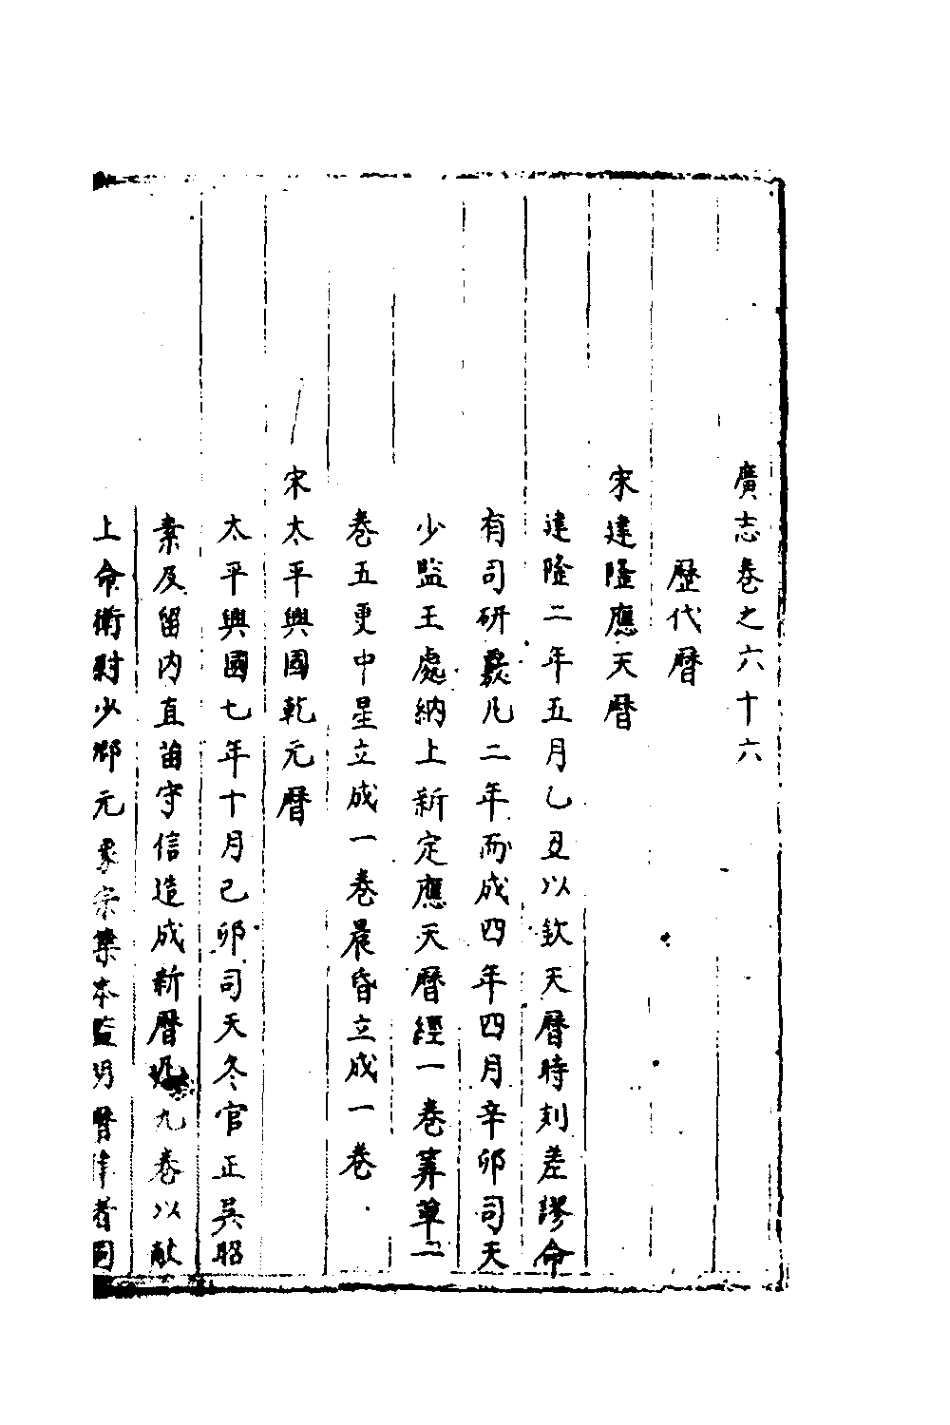 廣志卷之六十六
歷代曆
宋建隆應天曆
建隆二年五月乙丑以欽天曆時刻差謬命
有司研覈凡二年而成四年四月辛卯司天
少監王處納上新定應天曆經一卷筭草二
卷五更中星立成一卷晨昏立成一卷
宋太平興國乾元曆
太平興國七年十月己卯司天冬官正吳昭
素及留內直苗守信造成新曆凡九卷以献
上命衛尉少卿元象宗集本監明曆律者同